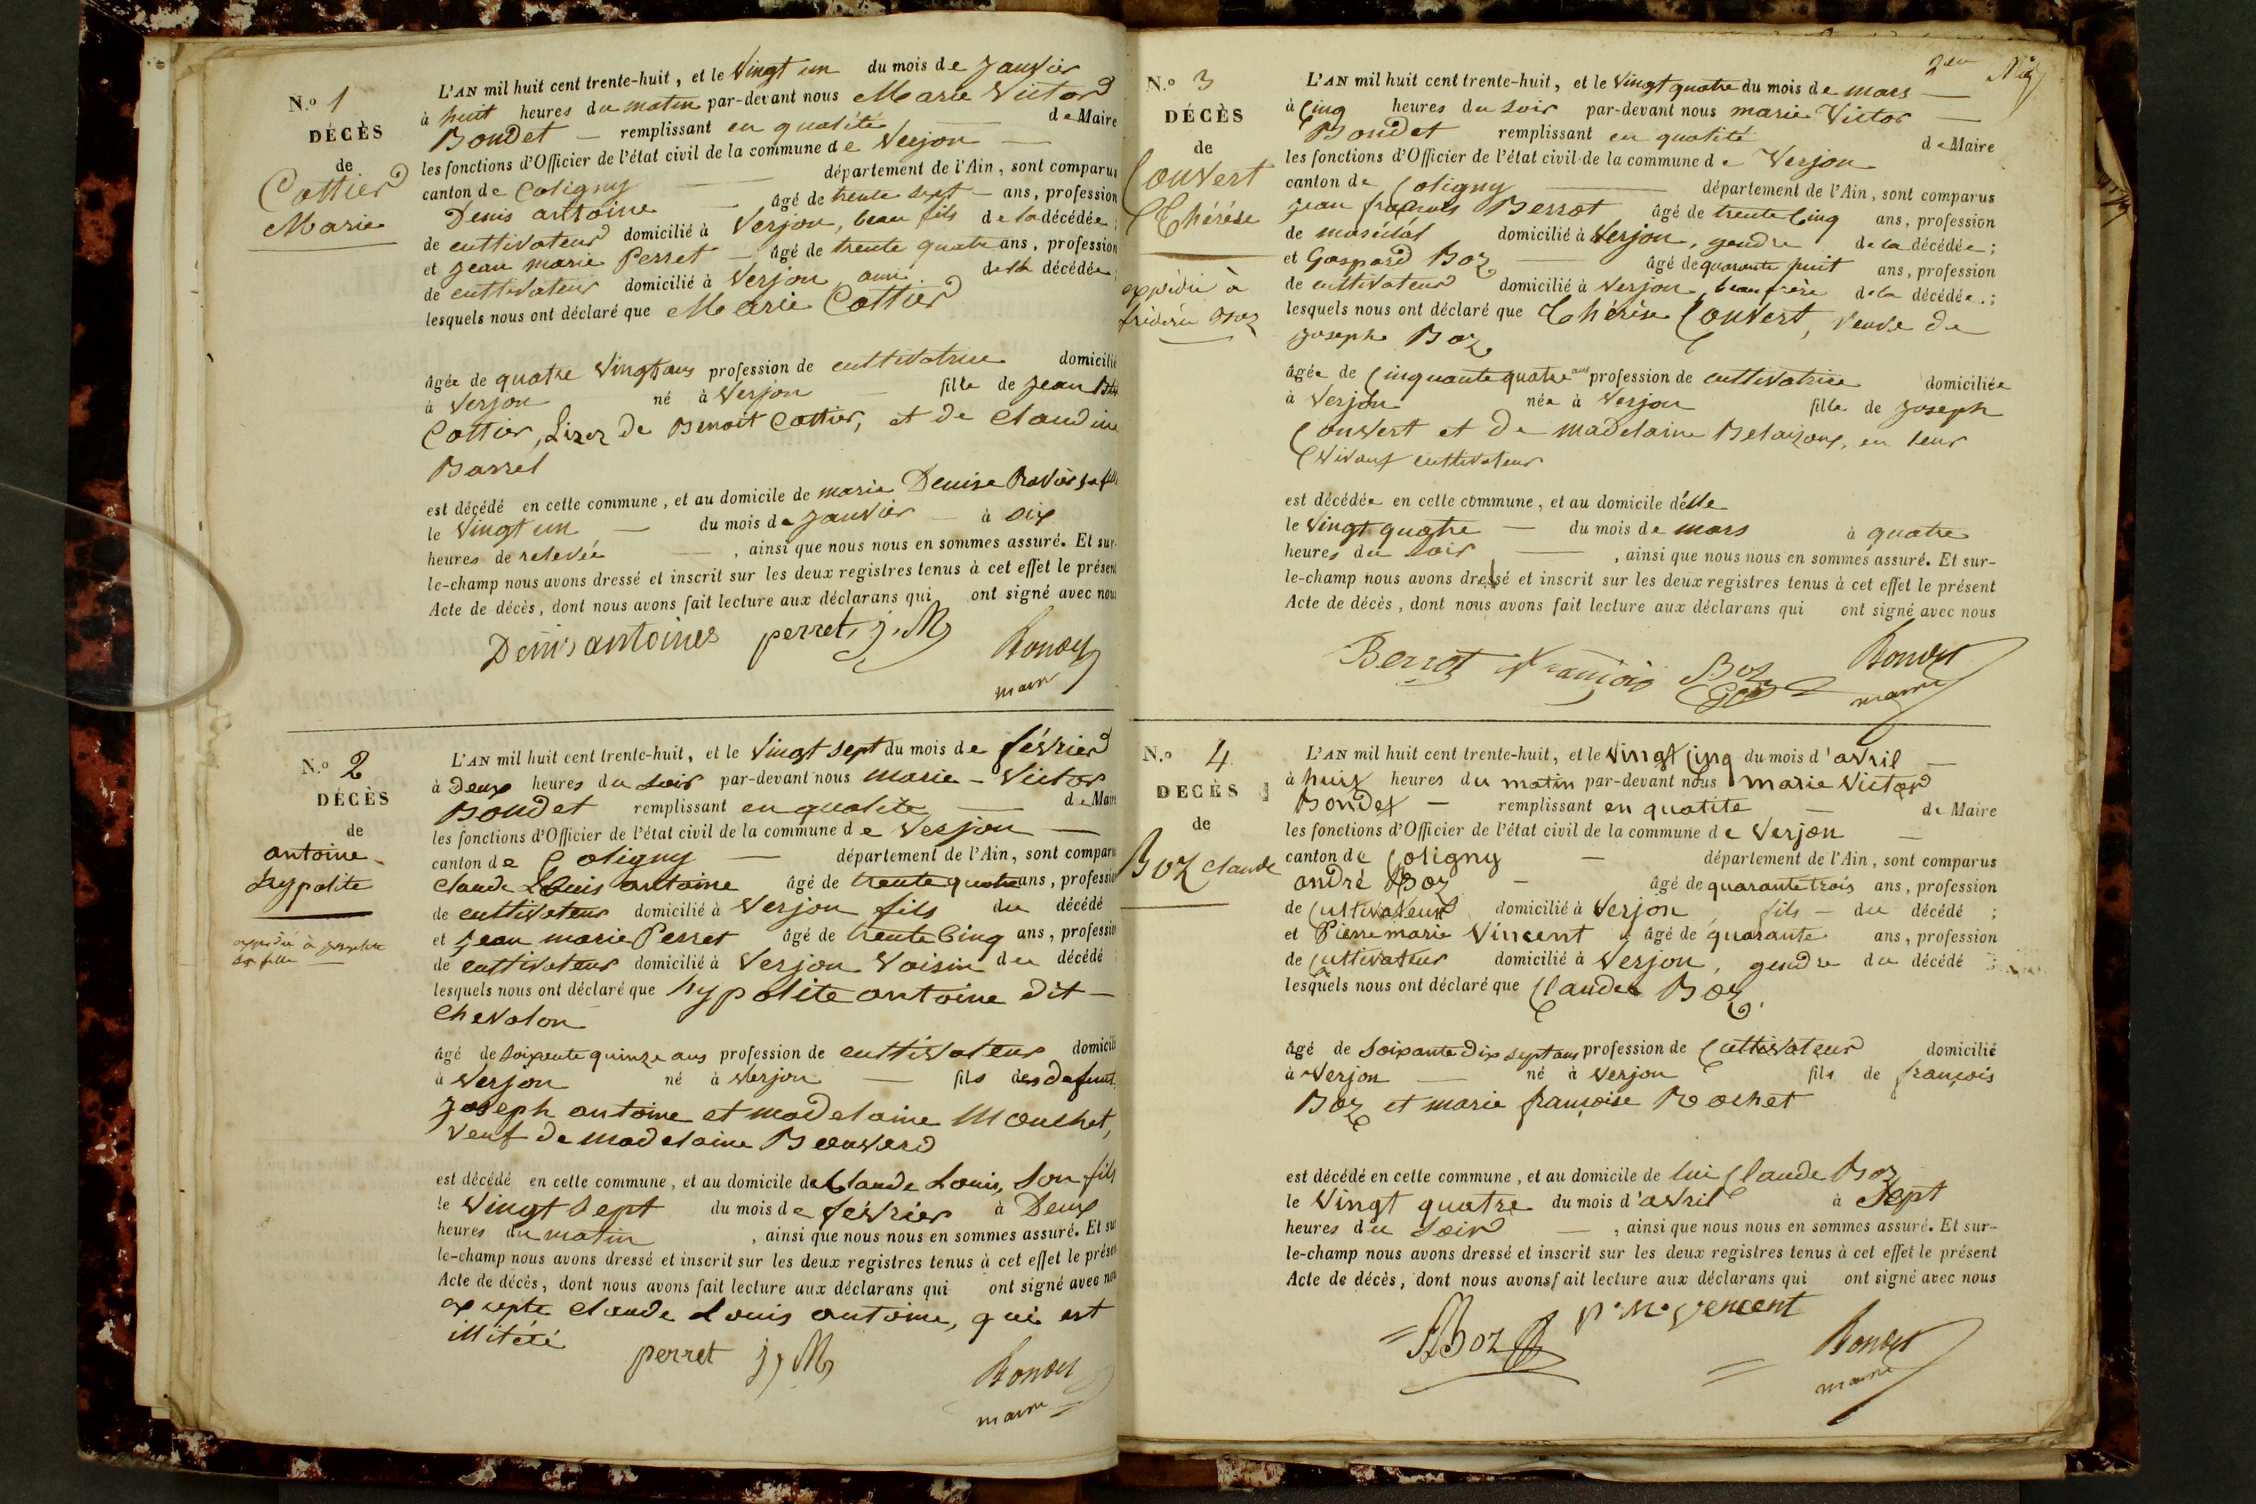 N.o 1
DÉCÈS
de
Cottier
Marie
L'AN mil huit cent trente-huit, et le Vingt un du mois de Janvier
à huit heures du matin par-devant nous Marie Victor
Bondet — remplissant en qualité de Maire
les fonctions d'Officier de l'état civil de la commune de Verjon —
canton de Coligny — département de l'Ain, sont comparus
Denis antoine — âgé de trente sept — ans, profession
de cultivateur domicilié à Verjon, beau fils de la décédée ;
et Jean marie Perret — âgé de trente quatre ans, profession
de cultivateur domicilié à Verjon, ami de la décédée ;
lesquels nous ont déclaré que Marie Cottier
âgée de quatre Vingt ans profession de cultivatrice domicilié
à Verjon né à Verjon — fille de Jean
Cottier, Lisez de Benoit Cottier, et de Claudine
Barrel
est décédé en cette commune, et au domicile de marie Denise Ravier sa fille
le Vingt un — du mois de Janvier — à dix
heures de relevée — , ainsi que nous nous en sommes assuré. Et sur-
le-champ nous avons dressé et inscrit sur les deux registres tenus à cet effet le présent
Acte de décès, dont nous avons fait lecture aux déclarans qui ont signé avec nous
Denis antoines perret, j. M Bondet
maire
N.o 2
DÉCÈS
de
antoine
hypolite
expédié à
sa fille
L'AN mil huit cent trente-huit, et le Vingt sept du mois de février
à Deux heures du soir par-devant nous marie - Victor
Bondet remplissant en qualité — de Maire
les fonctions d'Officier de l'état civil de la commune de Verjon —
canton de Coligny — département de l'Ain, sont comparus
Claude Louis antoine âgé de trente quatre ans, profession
de cultivateur domicilié à Verjon fils du décédé
et Jean marie Perret âgé de trente Cinq ans, profession
de cultivateur domicilié à Verjon Voisin du décédé
lesquels nous ont déclaré que hypolite antoine dit —
Chevalon
âgé de soixente quinze ans profession de cultivateur domicilié
à Verjon né à Verjon — fils des defunts
Joseph antoine et madelaine Mouchet,
Veuf de madelaine Bouvard
est décédé en cette commune, et au domicile de Claude Louis, son fils
le Vingt Sept du mois de février à Deux
heures du matin , ainsi que nous nous en sommes assuré. Et sur
le-champ nous avons dressé et inscrit sur les deux registres tenus à cet effet le présent
Acte de décès, dont nous avons fait lecture aux déclarans qui ont signé avec nous
excepte Claude Louis antoine, qui est
illitéré
perret j, M Bondet
maire
N.o 3
DÉCÈS
de
Couvert
Thérése
expédié à
2em
L'AN mil huit cent trente-huit, et le Vingt quatre du mois de mars —
à Cinq heures du soir par-devant nous marie Victor —
Bondet remplissant en qualité de Maire
les fonctions d'Officier de l'état civil de la commune de Verjon
canton de Coligny — département de l'Ain, sont comparus
Jean françois Berrot âgé de trente Cinq ans, profession
de maréchal domicilié à Verjon, gendre de la décédée ;
et Gaspard Boz — âgé de quarante huit ans, profession
de cultivateur domicilié à Verjon, beau frère de la décédée. ;
lesquels nous ont déclaré que Thérése Couvert, Veuve de
Joseph Boz
âgée de Cinquante quatre ans profession de cultivatrice domiciliée
à Verjon née à Verjon fille de Joseph
Couvert et de madelaine Belaizoux, en leur
Vivant cultivateur
est décédée en cette commune, et au domicile d'elle
le Vingt quatre — du mois de mars à quatre
heures du soir — , ainsi que nous nous en sommes assuré. Et sur-
le-champ nous avons dressé et inscrit sur les deux registres tenus à cet effet le présent
Acte de décès, dont nous avons fait lecture aux déclarans qui ont signé avec nous
Berrot françois Boz Bondet
maire
N.o 4
DÉCÈS
de
Boz Claude
L'AN mil huit cent trente-huit, et le Vingt Cinq du mois d'avril —
à huit heures du matin par-devant nous marie Victor
Bondet — remplissant en qualité — de Maire
les fonctions d'Officier de l'état civil de la commune de Verjon —
canton de Coligny — département de l'Ain, sont comparus
andré Boz — âgé de quarante trois ans, profession
de Cultivateur domicilié à Verjon, fils — du décédé ;
et Pierre marie Vincent âgé de quarante ans, profession
de Cultivateur domicilié à Verjon, gendre du décédé ;
lesquels nous ont déclaré que Claude Boz
âgé de Soixante Dix sept ans profession de Cultivateur domicilié
à Verjon — né à Verjon fils de françois
Boz et marie françoise Rochet
est décédé en cette commune, et au domicile de lui Claude Boz
le Vingt quatre du mois d'avril à Sept
heures du soir — , ainsi que nous nous en sommes assuré. Et sur-
le-champ nous avons dressé et inscrit sur les deux registres tenus à cet effet le présent
Acte de décès, dont nous avons fait lecture aux déclarans qui ont signé avec nous
ABoz p. M. vencent Bondet
maire